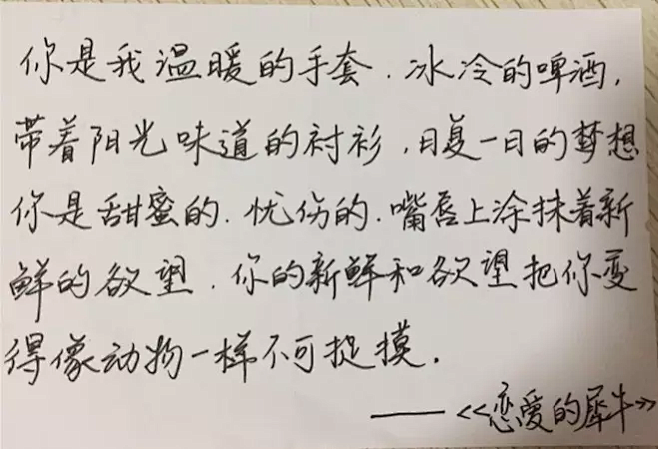 你是我温暖的手套.冰冷的啤酒,
带着阳光味道的衬衫,日复一日的梦想
你是甜蜜的.忧伤的.嘴唇上涂抹着新
鲜的欲望.你的新鲜和欲望把你变
得像动物一样不可捉摸.
——<<恋爱的犀牛>>